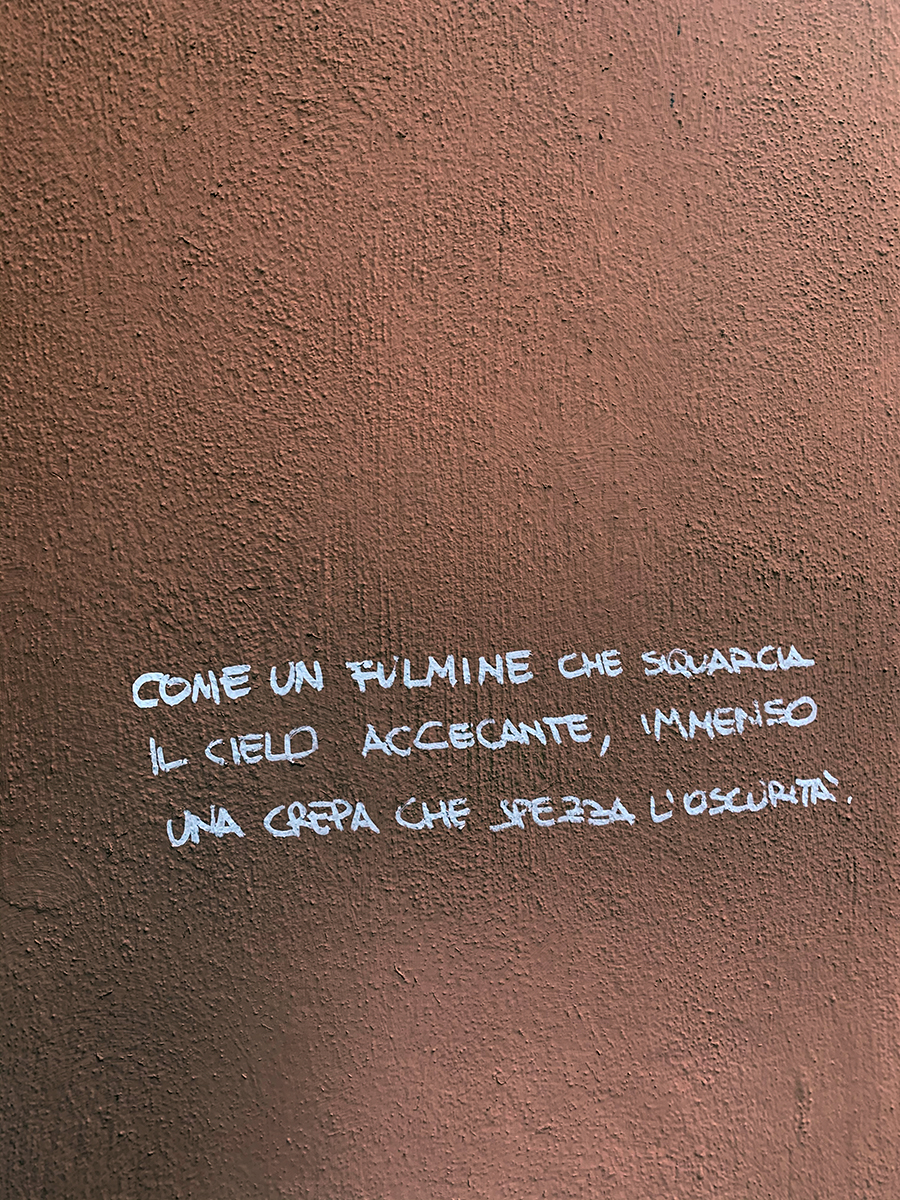 COME UN FULMINE CHE SQUARCIA
IL CIELO ACCECANTE, IMMENSO
UNA CREPA CHE SPEZZA L'OSCURITÀ.